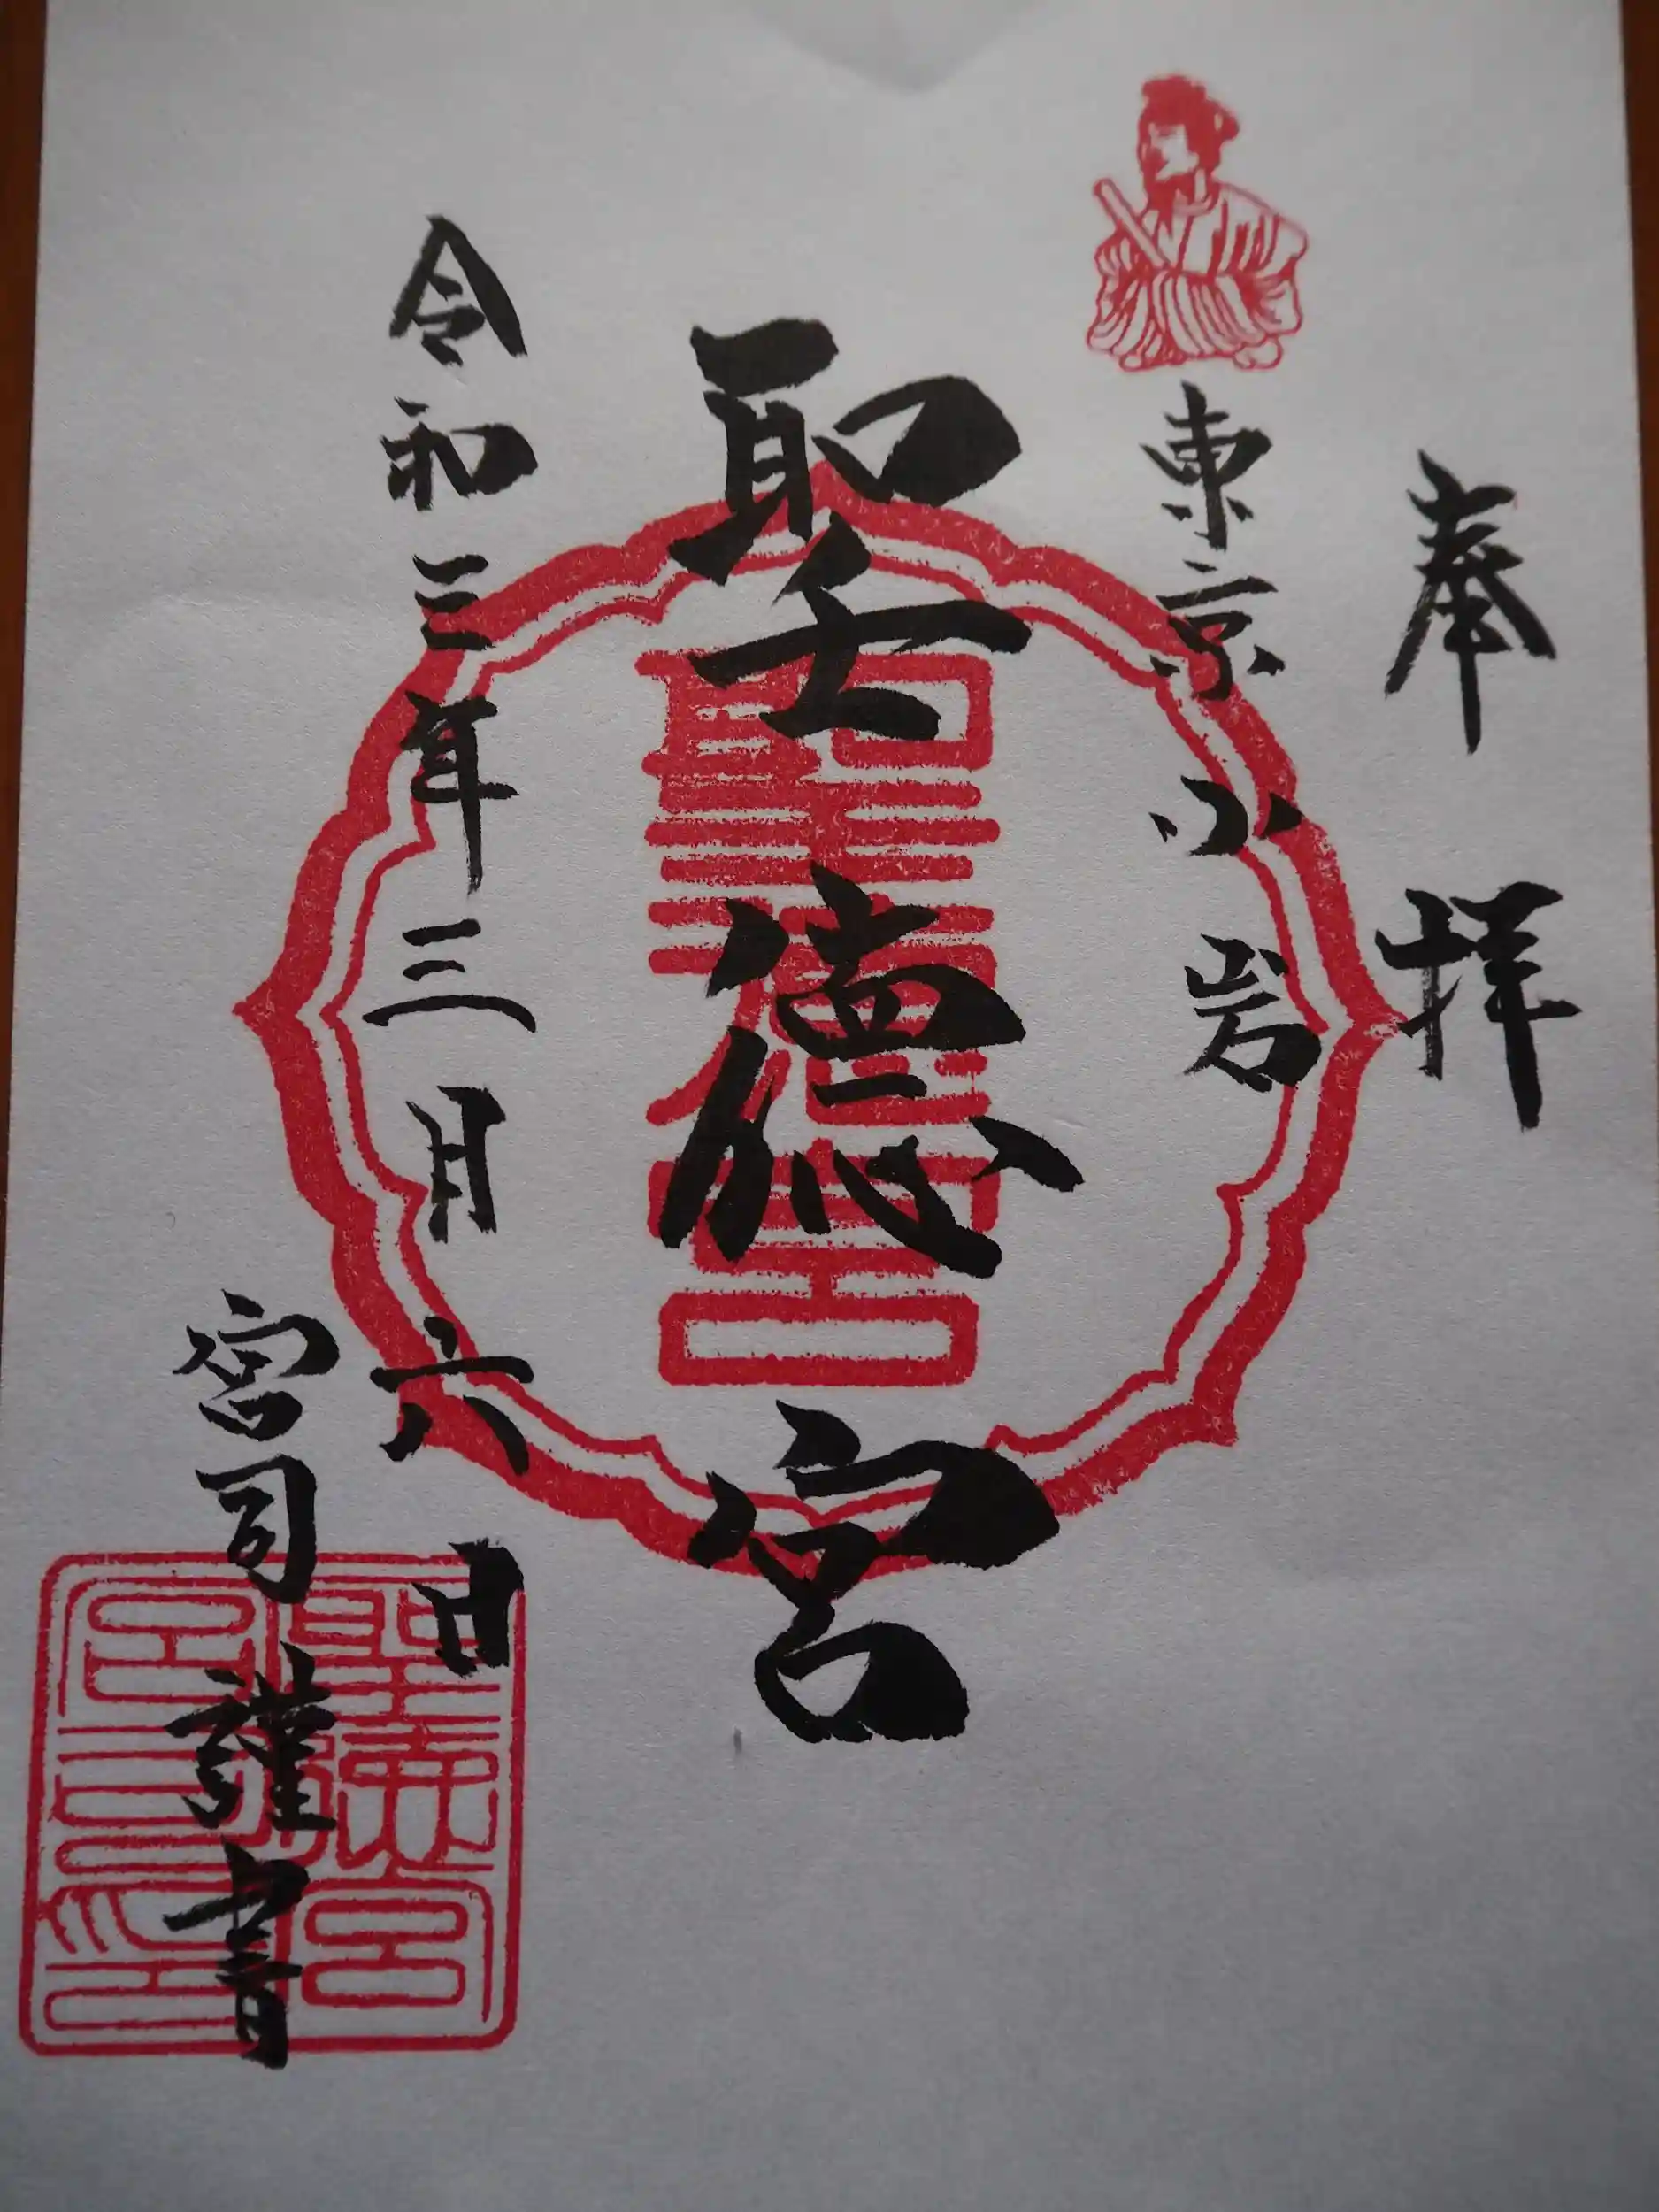 奉拝
東京小岩
聖徳宮
聖徳宮
令和三年三月六日
宮司謹書
聖徳宮
宮司印